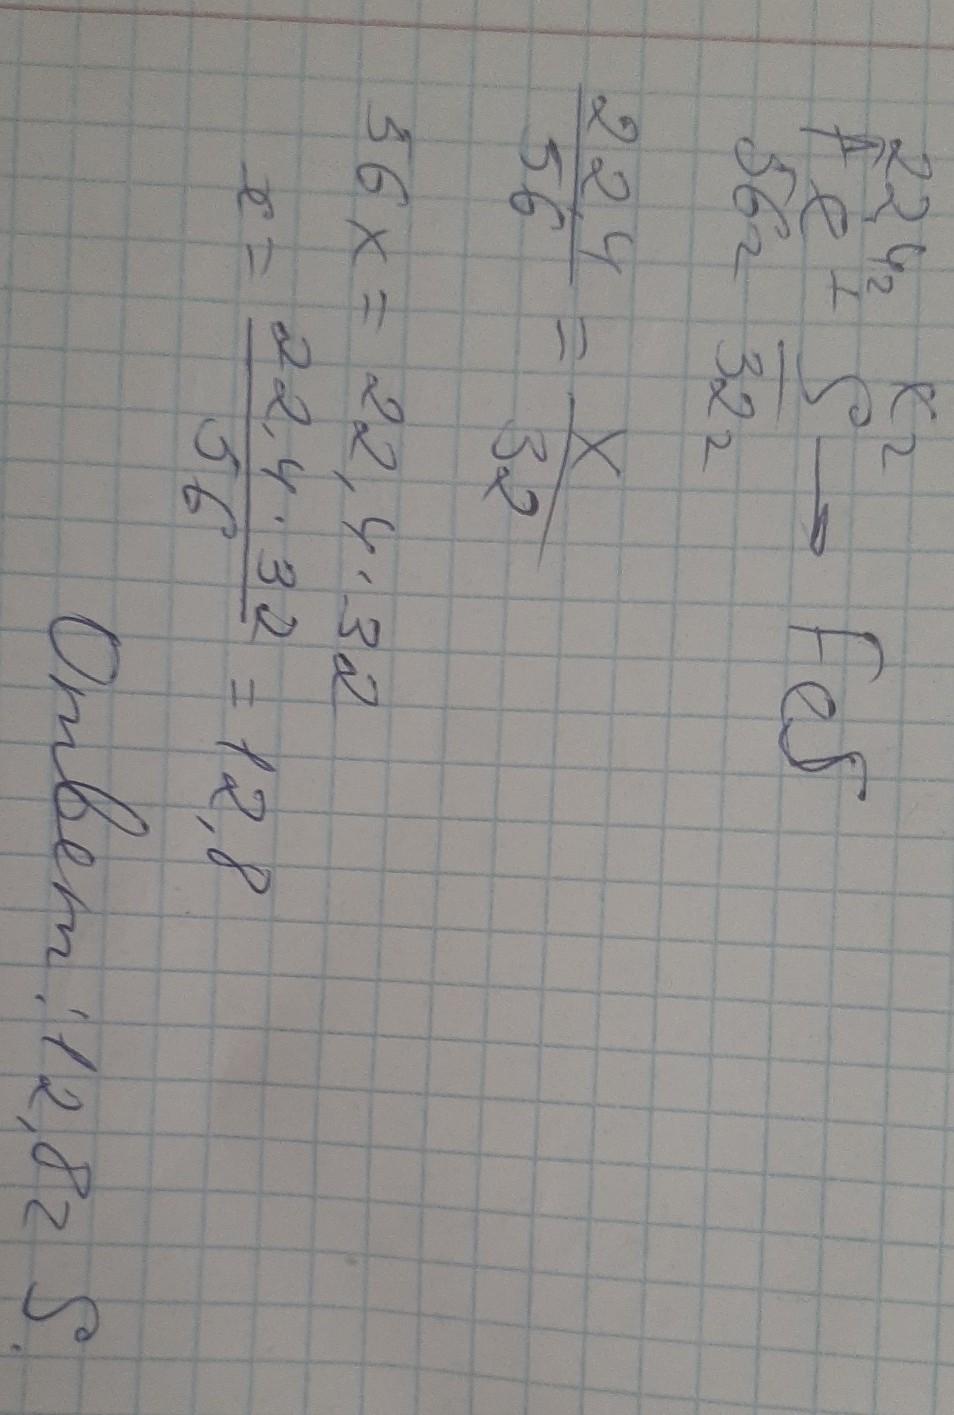 22,4г xг
Fe + S → FeS
56г 32г
224/56 = x/32
56x = 22,4·32
x = 22,4·32/56 = 12,8
Ответ: 12,8г S.